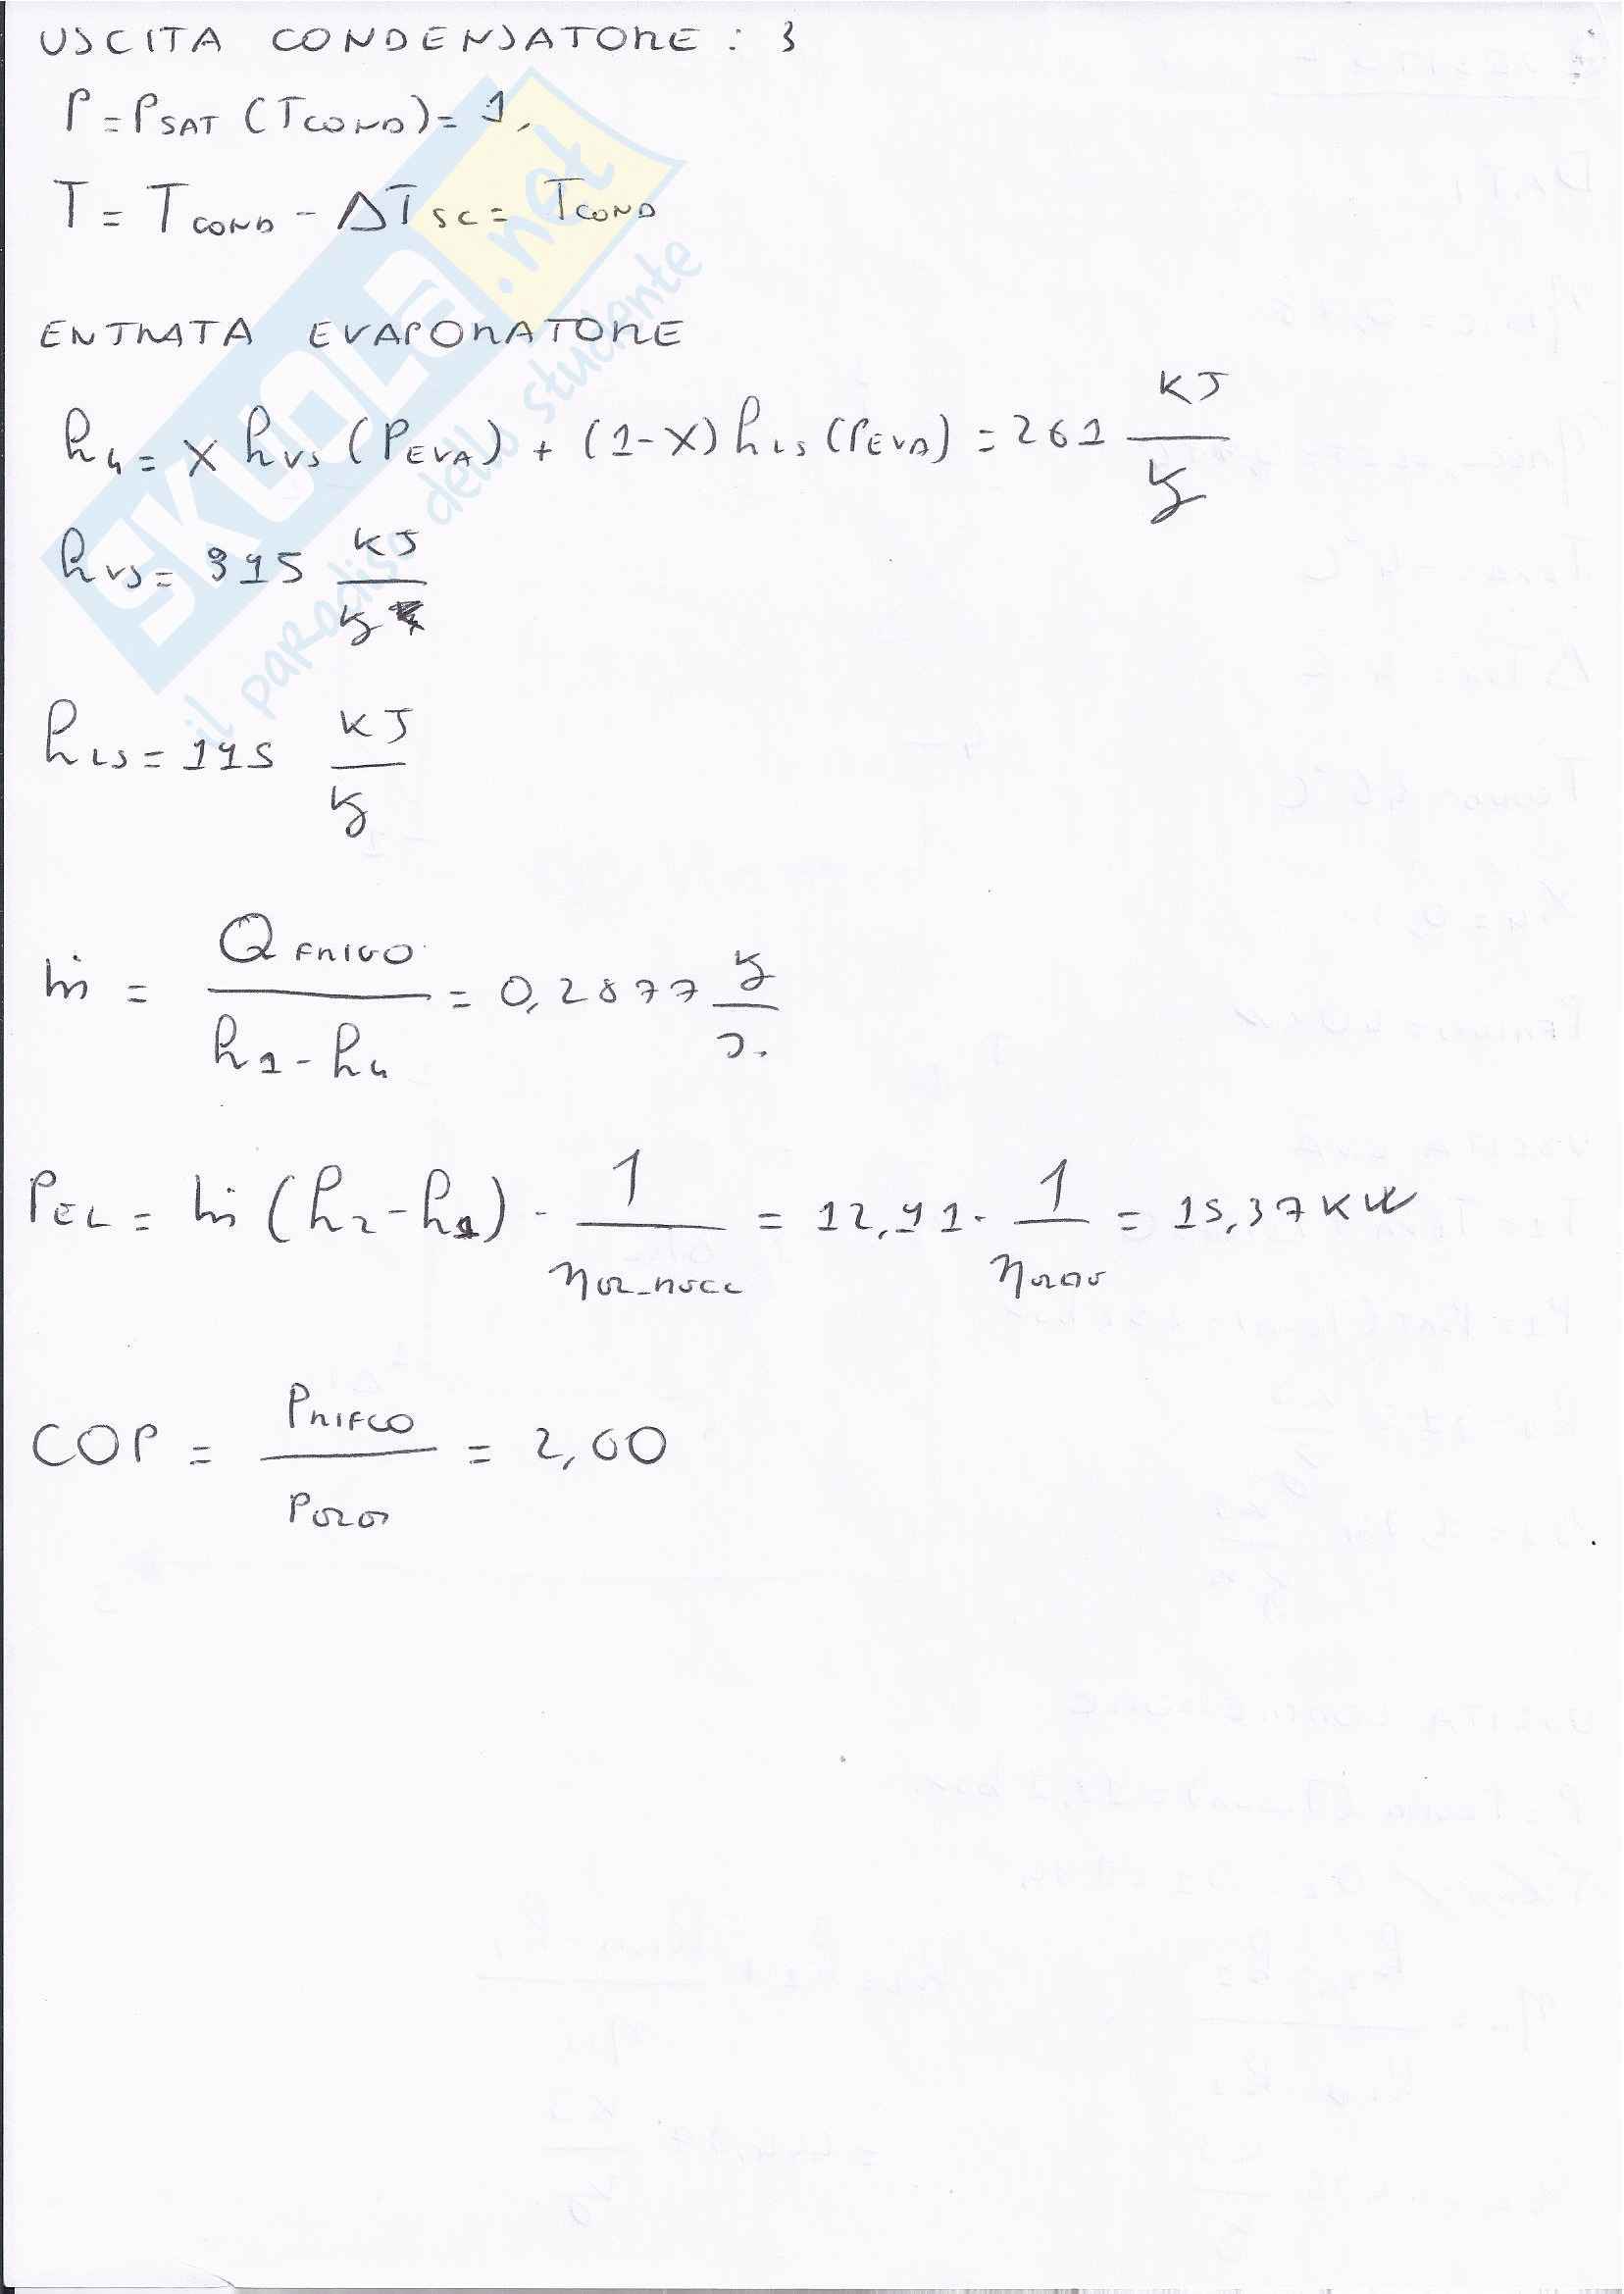 USCITA CONDENSATORE : 3
P = PSAT (TCOND) = 1,
T = TCOND - ΔTSC = TCOND
ENTRATA EVAPORATORE
h4 = x hVS (PEVA) + (1-x) hLS (PEVA) = 261 KJ/kg
hVS = 395 KJ/kg
hLS = 195 KJ/kg
ṁ = QFRIGO / (h1 - h4) = 0,2877 kg/s
PEL = ṁ (h2 - h1) · 1/ηor-nocc = 12,91 · 1/η = 15,37 KW
COP = P / P = 2,60
SKUOLA.net
il paradiso dello studente